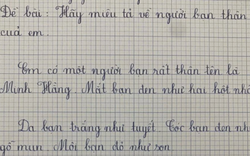 Đề bài: Hãy miêu tả về người bạn thân
của em.
Em có một người bạn rất thân tên là
Minh Hằng. Mắt bạn đen như hai hột nhã
Da bạn trắng như tuyết. Tóc bạn đen nh
gỗ mun. Môi bạn đỏ như son.